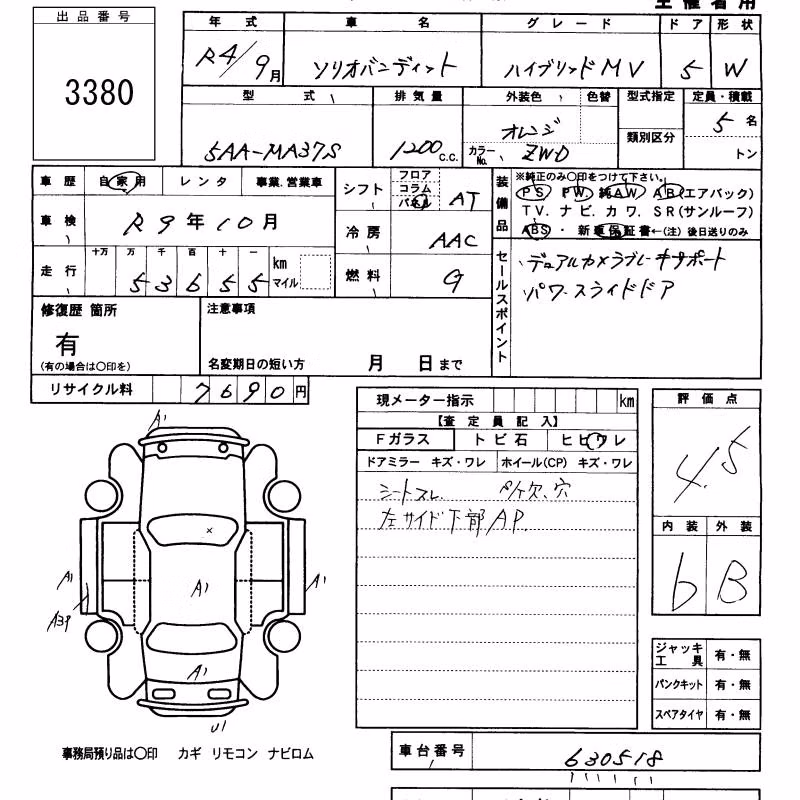 主催者用
出品番号
3380
年式 車名 グレード ドア 形状
R4/9月 ソリオバンディット ハイブリッドMV 5 W
型式 排気量 外装色 色替 型式指定 定員・積載
5AA-MA37S 1200c.c. オレンジ 5名
カラーNo. ZWD 類別区分 トン
車歴 自家用 レンタ 事業.営業車
シフト フロア コラム パネル AT
装備品 ※純正のみ○印をつけて下さい。
PS PW 純AW AB(エアバック)
TV. ナビ. カワ. SR(サンルーフ)
ABS・新車保証書←(注)後日送りのみ
車検 R9年10月
冷房 AAC
走行 十万 万 千 百 十 一
53655 km マイル
燃料 G
セールスポイント
デュアルカメラブレーキサポート
パワースライドドア
修復歴 箇所
有
(有の場合は○印を)
注意事項
名変期日の短い方 月 日まで
リサイクル料 7690円
現メーター指示 km
【査定員記入】
Fガラス トビ石 ヒビワレ
ドアミラー キズ・ワレ ホイール(CP) キズ・ワレ
シートスレ. 穴
左サイド下部AP.
評価点
4.5
内装 外装
b B
ジャッキ工具 有・無
パンクキット 有・無
スペアタイヤ 有・無
A1
×
A1
A1
A1
A39
A1
U1
事務局預り品は○印 カギ リモコン ナビロム
車台番号 630518